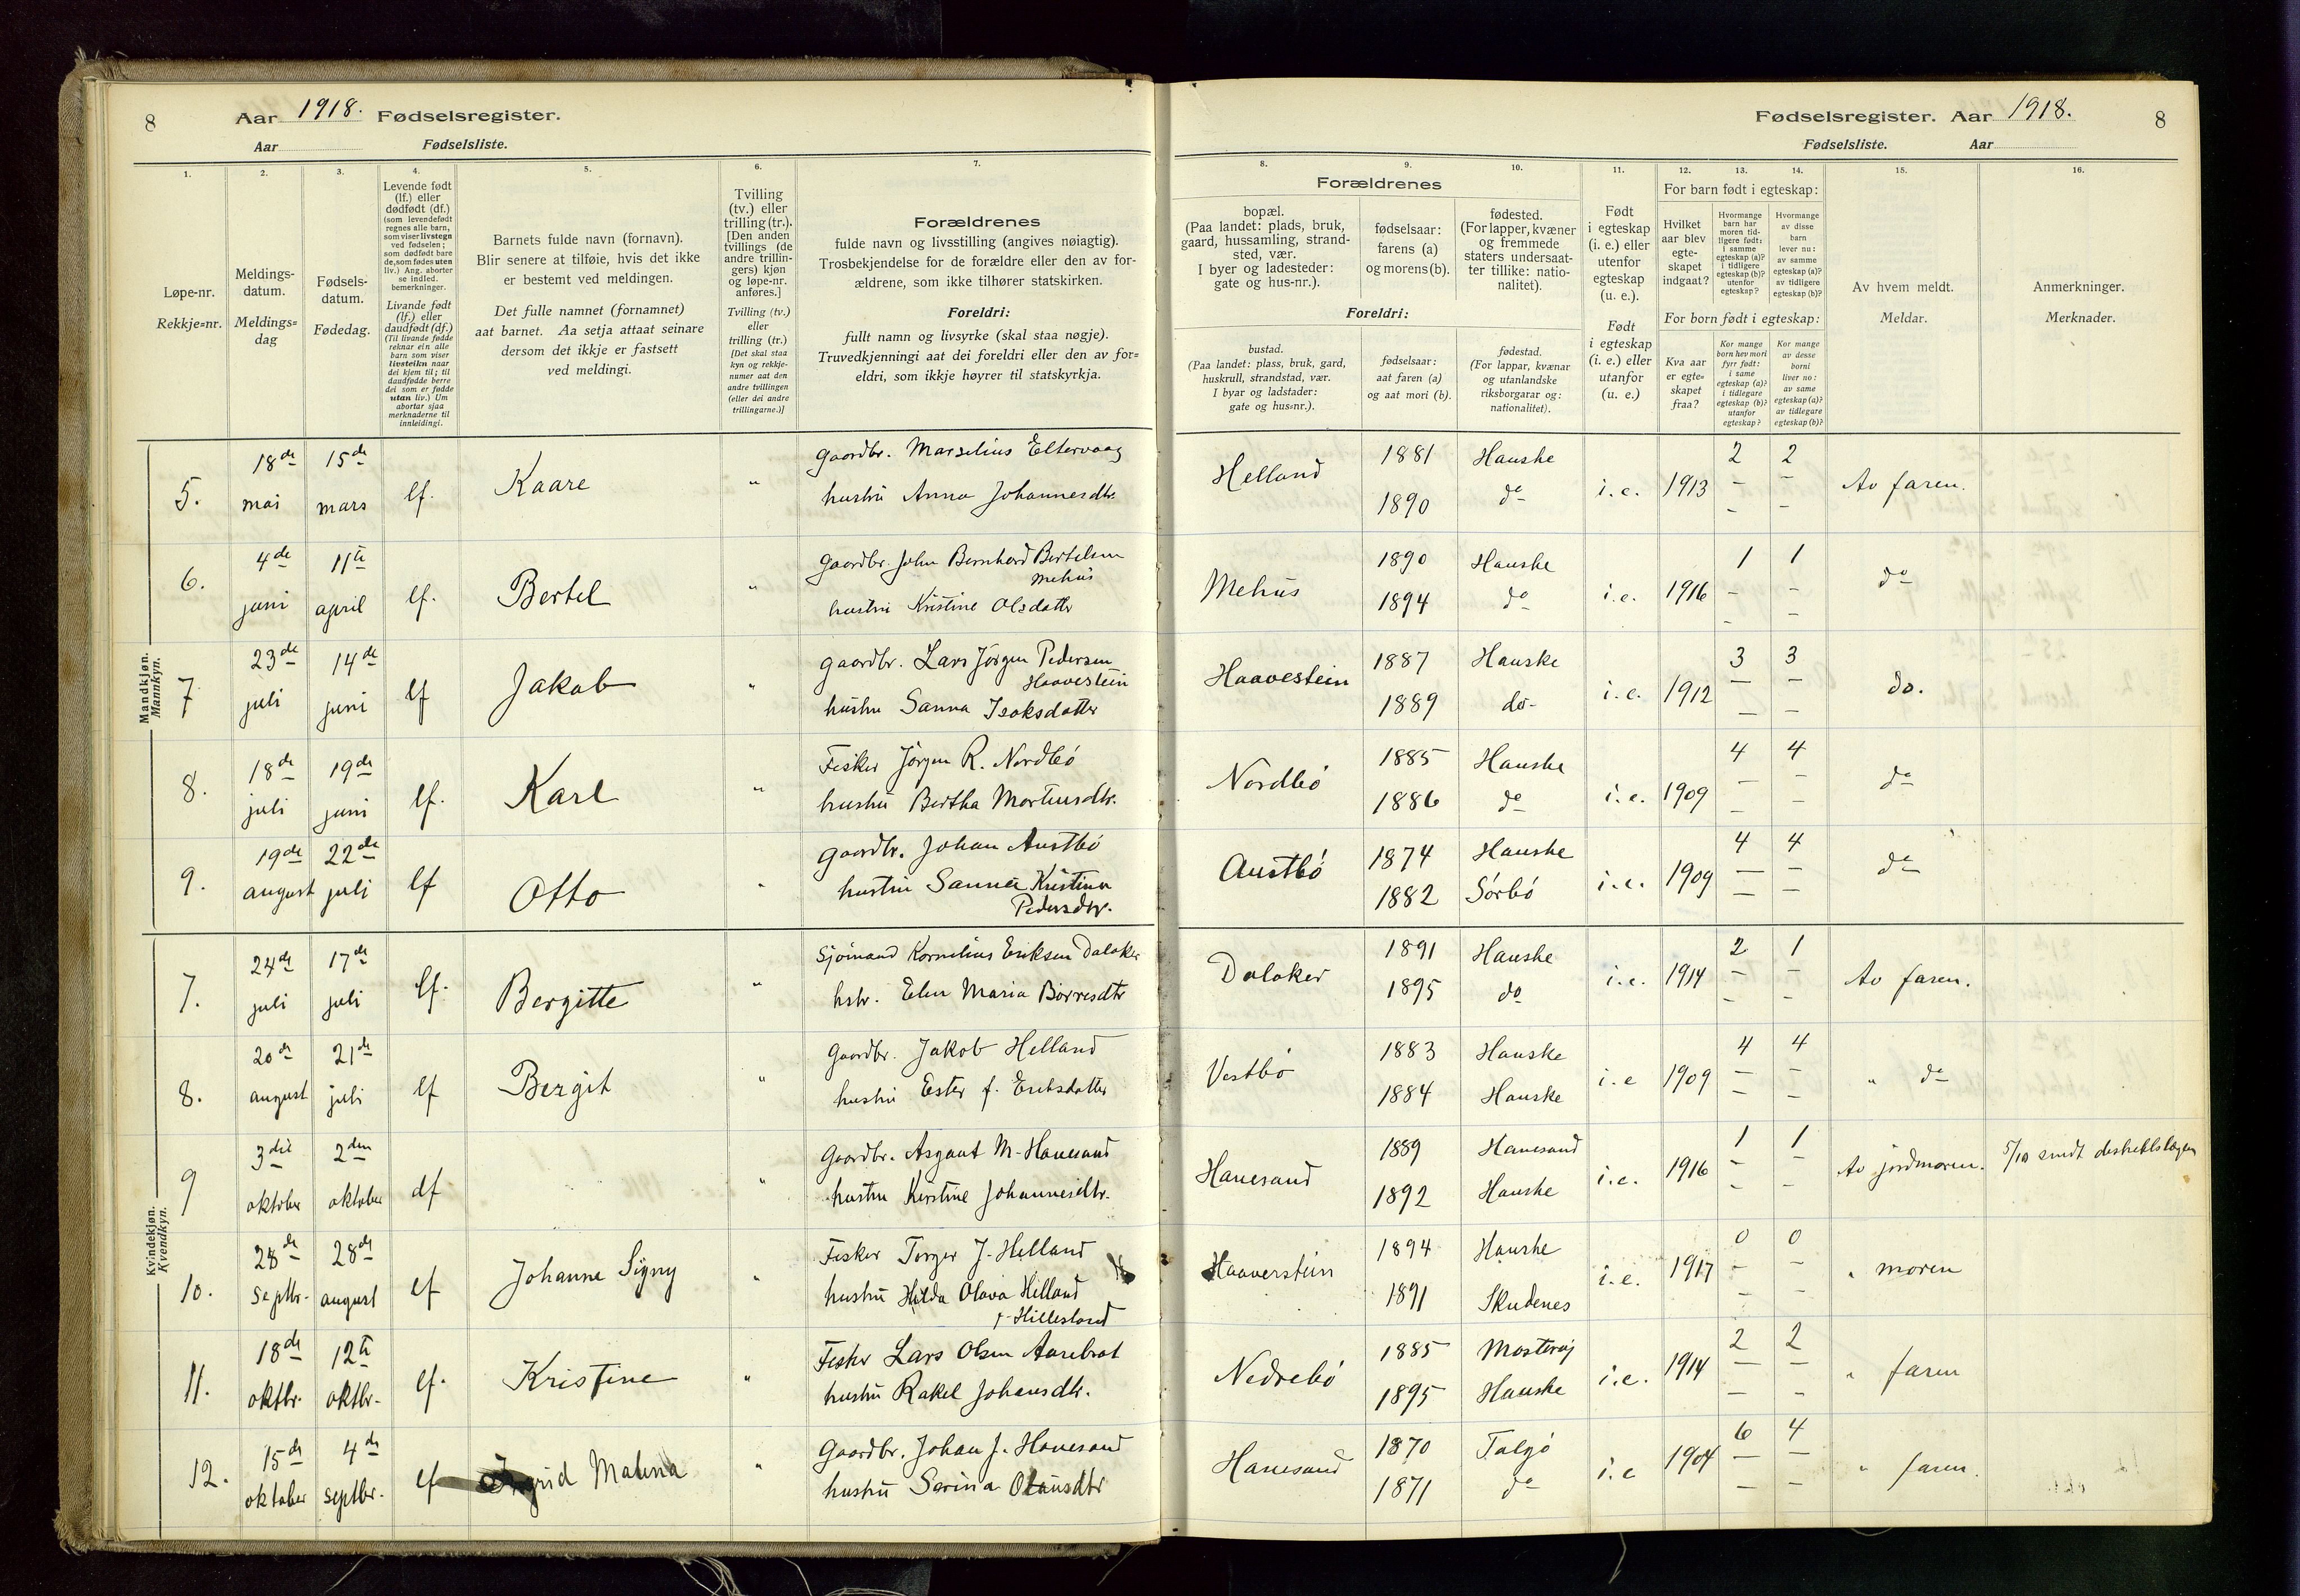 8 Aar 1918. Fødselsregister.
Aar Fødselsliste.
Fødselsregister. Aar 1918. 8
Fødselsliste. Aar
1. 2. 3. 4. 5. 6. 7.
Løpe-nr.
Rekkje=nr.
Meldings-
datum.
Meldings=
dag
Fødsels-
datum.
Fødedag.
Levende født
(lf.) eller
dødfødt (df.)
(som levendefødt
regnes alle barn,
som viser livstegn
ved fødselen;
som dødfødt bare
de, som fødes uten
liv.) Ang. aborter
se indled.
bemerkninger.
Livande født
(lf.) eller
daudfødt (df.)
(Til livande fødde
reknar ein alle
barn som viser
livsteikn naar
dei kjem til; til
daudfødde berre
dei som er fødde
utan liv.) Um
abortar sjaa
merknaderne til
innleidingi.
Barnets fulde navn (fornavn).
Blir senere at tilføie, hvis det ikke
er bestemt ved meldingen.
Det fulle namnet (fornamnet)
aat barnet. Aa setja attaat seinare
dersom det ikkje er fastsett
ved meldingi.
Tvilling
(tv.) eller
trilling (tr.).
[Den anden
tvillings (de
andre trillin-
gers) kjøn
og løpe-nr.
anføres.]
Tvilling (tv.)
eller
trilling (tr.)
[Det skal staa
kyn og rekkje-
numer aat den
andre tvillingen
(eller dei andre
trillingarne.)]
Forældrenes
fulde navn og livsstilling (angives nøiagtig).
Trosbekjendelse for de forældre eller den av for-
ældrene, som ikke tilhører statskirken.
Foreldri:
fullt namn og livsyrke (skal staa nøgje).
Truvedkjenningi aat dei foreldri eller den av for-
eldri, som ikkje høyrer til statskyrkja.
8. 9. 10. 11. 12. 13. 14. 15. 16.
Forældrenes
bopæl.
(Paa landet: plads, bruk,
gaard, hussamling, strand-
sted, vær.
I byer og ladesteder:
gate og hus-nr.).
fødselsaar:
farens (a)
og morens (b).
fødested.
(For lapper, kvæner
og fremmede
staters undersaat-
ter tillike: natio-
nalitet).
Foreldri:
bustad.
(Paa landet: plass, bruk, gard,
huskrull, strandstad, vær.
I byar og ladstader:
gate og hus=nr.).
fødselsaar:
aat faren (a)
og aat mori (b).
fødestad.
(For lappar, kvænar
og utanlandske
riksborgarar og:
nationalitet).
Født
i egteskap
(i. e.) eller
utenfor
egteskap
(u. e.).
Født
i egteskap
(i. e.) eller
utanfor
(u. e.)
For barn født i egteskap:
Hvilket
aar blev
egte-
skapet
indgaat?
Hvormange
barn har
moren tid-
ligere født:
i samme
egteskap (a)?
i tidligere
egteskap (b)?
utenfor
egteskap?
Hvormange
av disse
barn
lever nu:
av samme
egteskap (a)?
av tidligere
egteskap (b)?
For born født i egteskap:
Kva aar
er egte=
skapet
fraa?
Kor mange
born hev mori
fyrr født:
i same
egteskap (a)?
i tidlegare
egteskap (b)?
utanfor
egteskap?
Kor mange
av desse
borni
liver no:
av same
egteskap (a)?
av tidlegare
egteskap (b)?
Av hvem meldt.
Meldar.
Anmerkninger.
Merknader.
Mandkjøn.
Mannkyn.
5. 18de mai 15de mars lf. Kaare "
Gaardbr. Marselius Eltervaag
hustru Anna Johannesdtr.
Helland 1881 Hauske
1890 do i. e. 1913 2 – – 2 – – Av faren.
6. 4de juni 11te april lf. Bertel "
Gaardbr. John Bernhard Bertelsen
Mehus
hustru Kristine Olsdatter
Mehus 1890 Hauske
1894 do i. e. 1916 1 – – 1 – – do
7 23de juli 14de juni lf Jakob "
Gaardbr. Lars Jörgen Pedersen
Haavestein
hustru Sanna Isaksdatter
Haavestein 1887 Hauske
1889 do- i. e. 1912 3 – – 3 – – do.
8. 18de juli 19de juni lf. Karl "
Fisker Jörgen R. Nordbó
hustru Bertha Mortensdtr.
Nordbó 1885 Hauske
1886 do i. e. 1909 4 – – 4 – – do
9. 19de august 22de juli lf Otto "
Gaardbr. Johan Austbó
hustru Sanna Kristina
Pedersdtr.
Austbó 1874 Hauske
1882 Sörbó i. e. 1909 4 – – 4 – – do
Kvindekjøn.
Kvendkyn.
7. 24de juli 17de juli lf. Bergitte "
Sjömand Kornelius Eriksen Dalaker
hstr. Elen Maria Börresdtr
Dalaker 1891 Hauske
1895 do i. e. 1914 2 – – 1 – – Av faren.
8. 20de august 21de juli lf Bergit "
Gaardbr. Jakob Helland
hustru Ester f. Eriksdatter
Vestbö 1883 Hauske
1884 Hauske i. e 1909 4 – – 4 – – " do
9 3die oktober 2den oktober df "
Gaardbr. Asgaut M. Hanesand
hustru Kirstine Johannesdtr.
Hanesand 1889 Hanesand
1892 Hauske i. e. 1916 1 – – 1 – – Av jordmoren. 5/10 sendt distriktslægen
10. 28de septbr. 28de august lf Johanne Signy "
Fisker Torger J. Helland
hustru Hilda Olava Helland
f. Hillesland
Haaverstein 1894 Hauske
1891 Skudenes i. e. 1917 0 – – 0 – – " moren
11. 18de oktbr. 12te oktbr. lf. Kristine "
Fisker Lars Olsen Aarebrot
hustru Rakel Johansdtr.
Nedrebó 1885 Mosteröj
1895 Hauske i. e. 1914 2 – – 2 – – " faren
12. 15de oktober 4de septbr. lf Ingrid Malena "
Gaardbr. Johan J. Hanesand
hustru Serina Olausdtr
Hanesand 1870 Talgö
1871 do i. e 1904 6 – – 4 – – " faren.